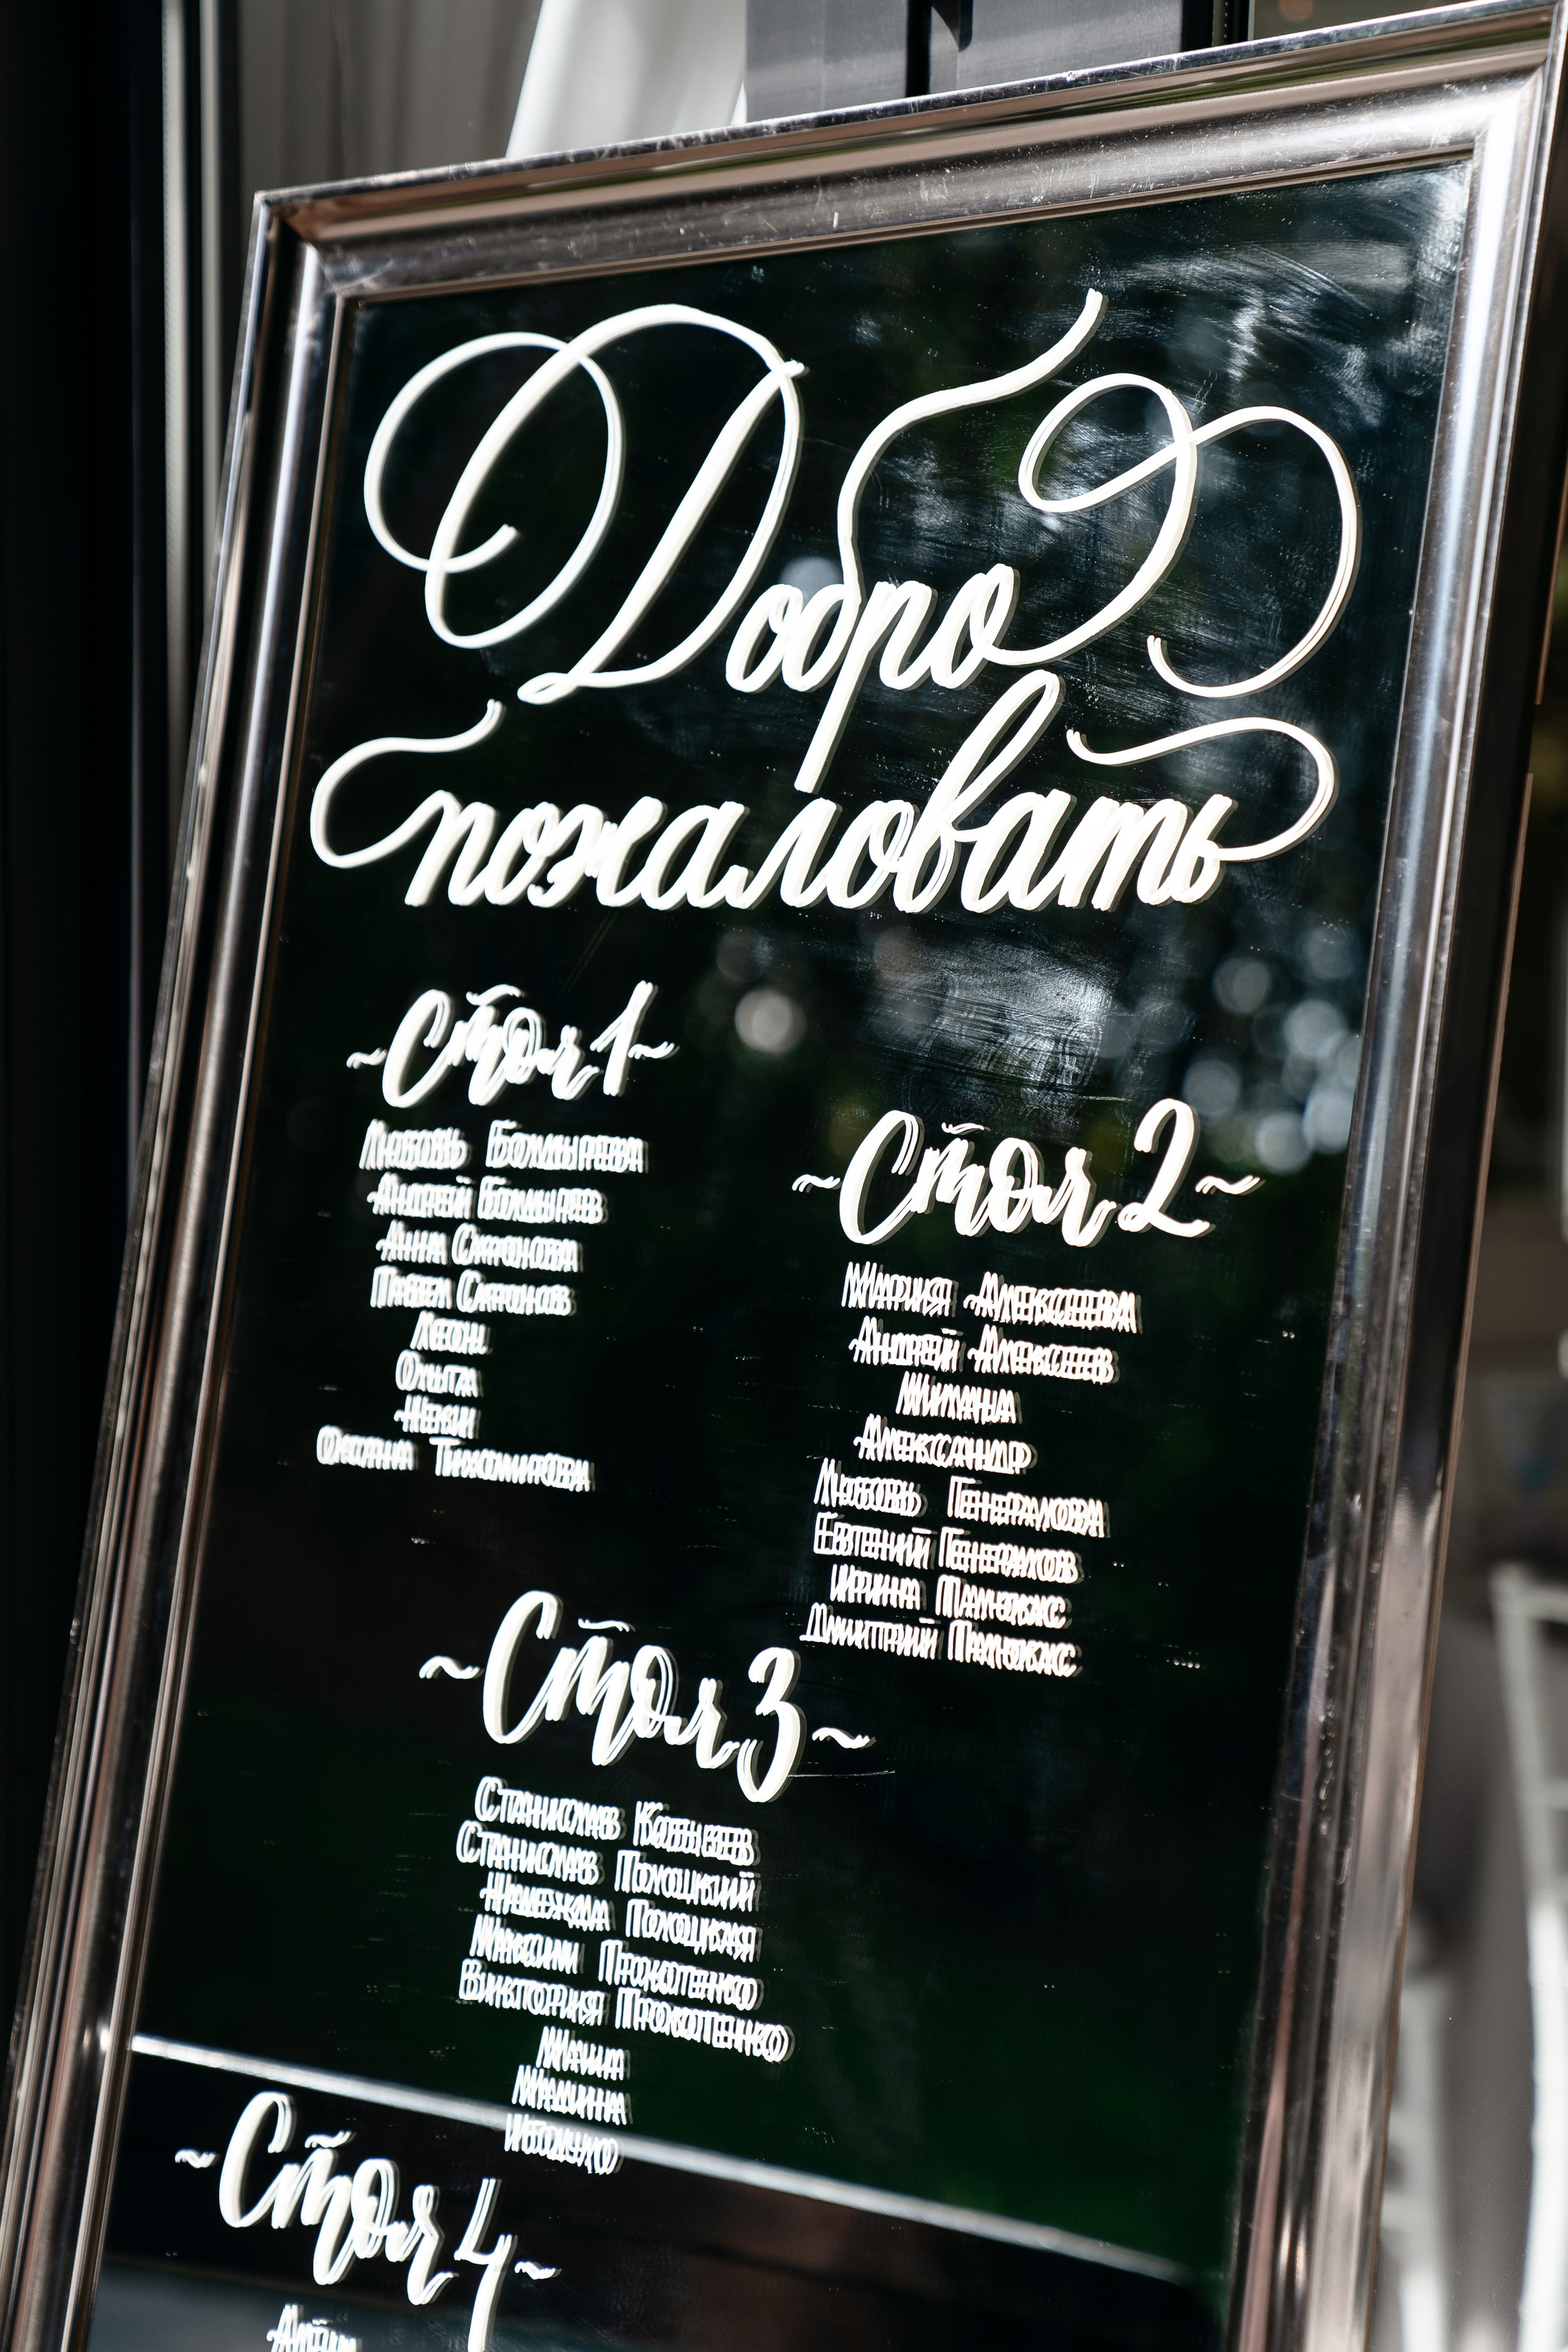 Добро
пожаловать
~Стол 1~
Любовь Болдырева
Андрей Болдырев
Анна Сафонова
Павел Сафонов
Леон
Ольга
Оксана Тихомирова
~Стол 2~
Мария Алексеева
Андрей Алексеев
Милана
Александр
Любовь Генералова
Евгений Генералов
Ирина
Дмитрий
~Стол 3~
Станислав
Станислав Полоцкий
Надежда Полоцкая
Максим Прокопенко
Виктория Прокопенко
Маша
Мадина
~Стол 4~